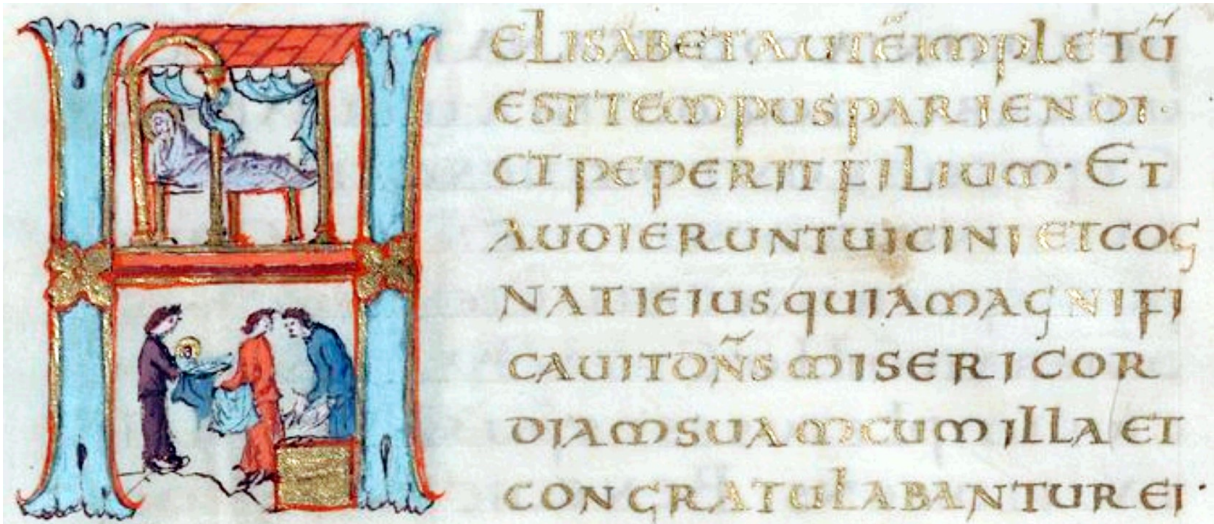 H ELISABET AUTĒ IMPLETŪ
EST TEMPUS PARIENDI·
ET PEPERIT FILIUM· ET
AUDIERUNT UICINI ET COG
NATI EIUS QUIA MAGNIFI
CAUIT DN̄S MISERICOR
DIAM SUAM CUM ILLA ET
CONGRATULABANTUR EI·